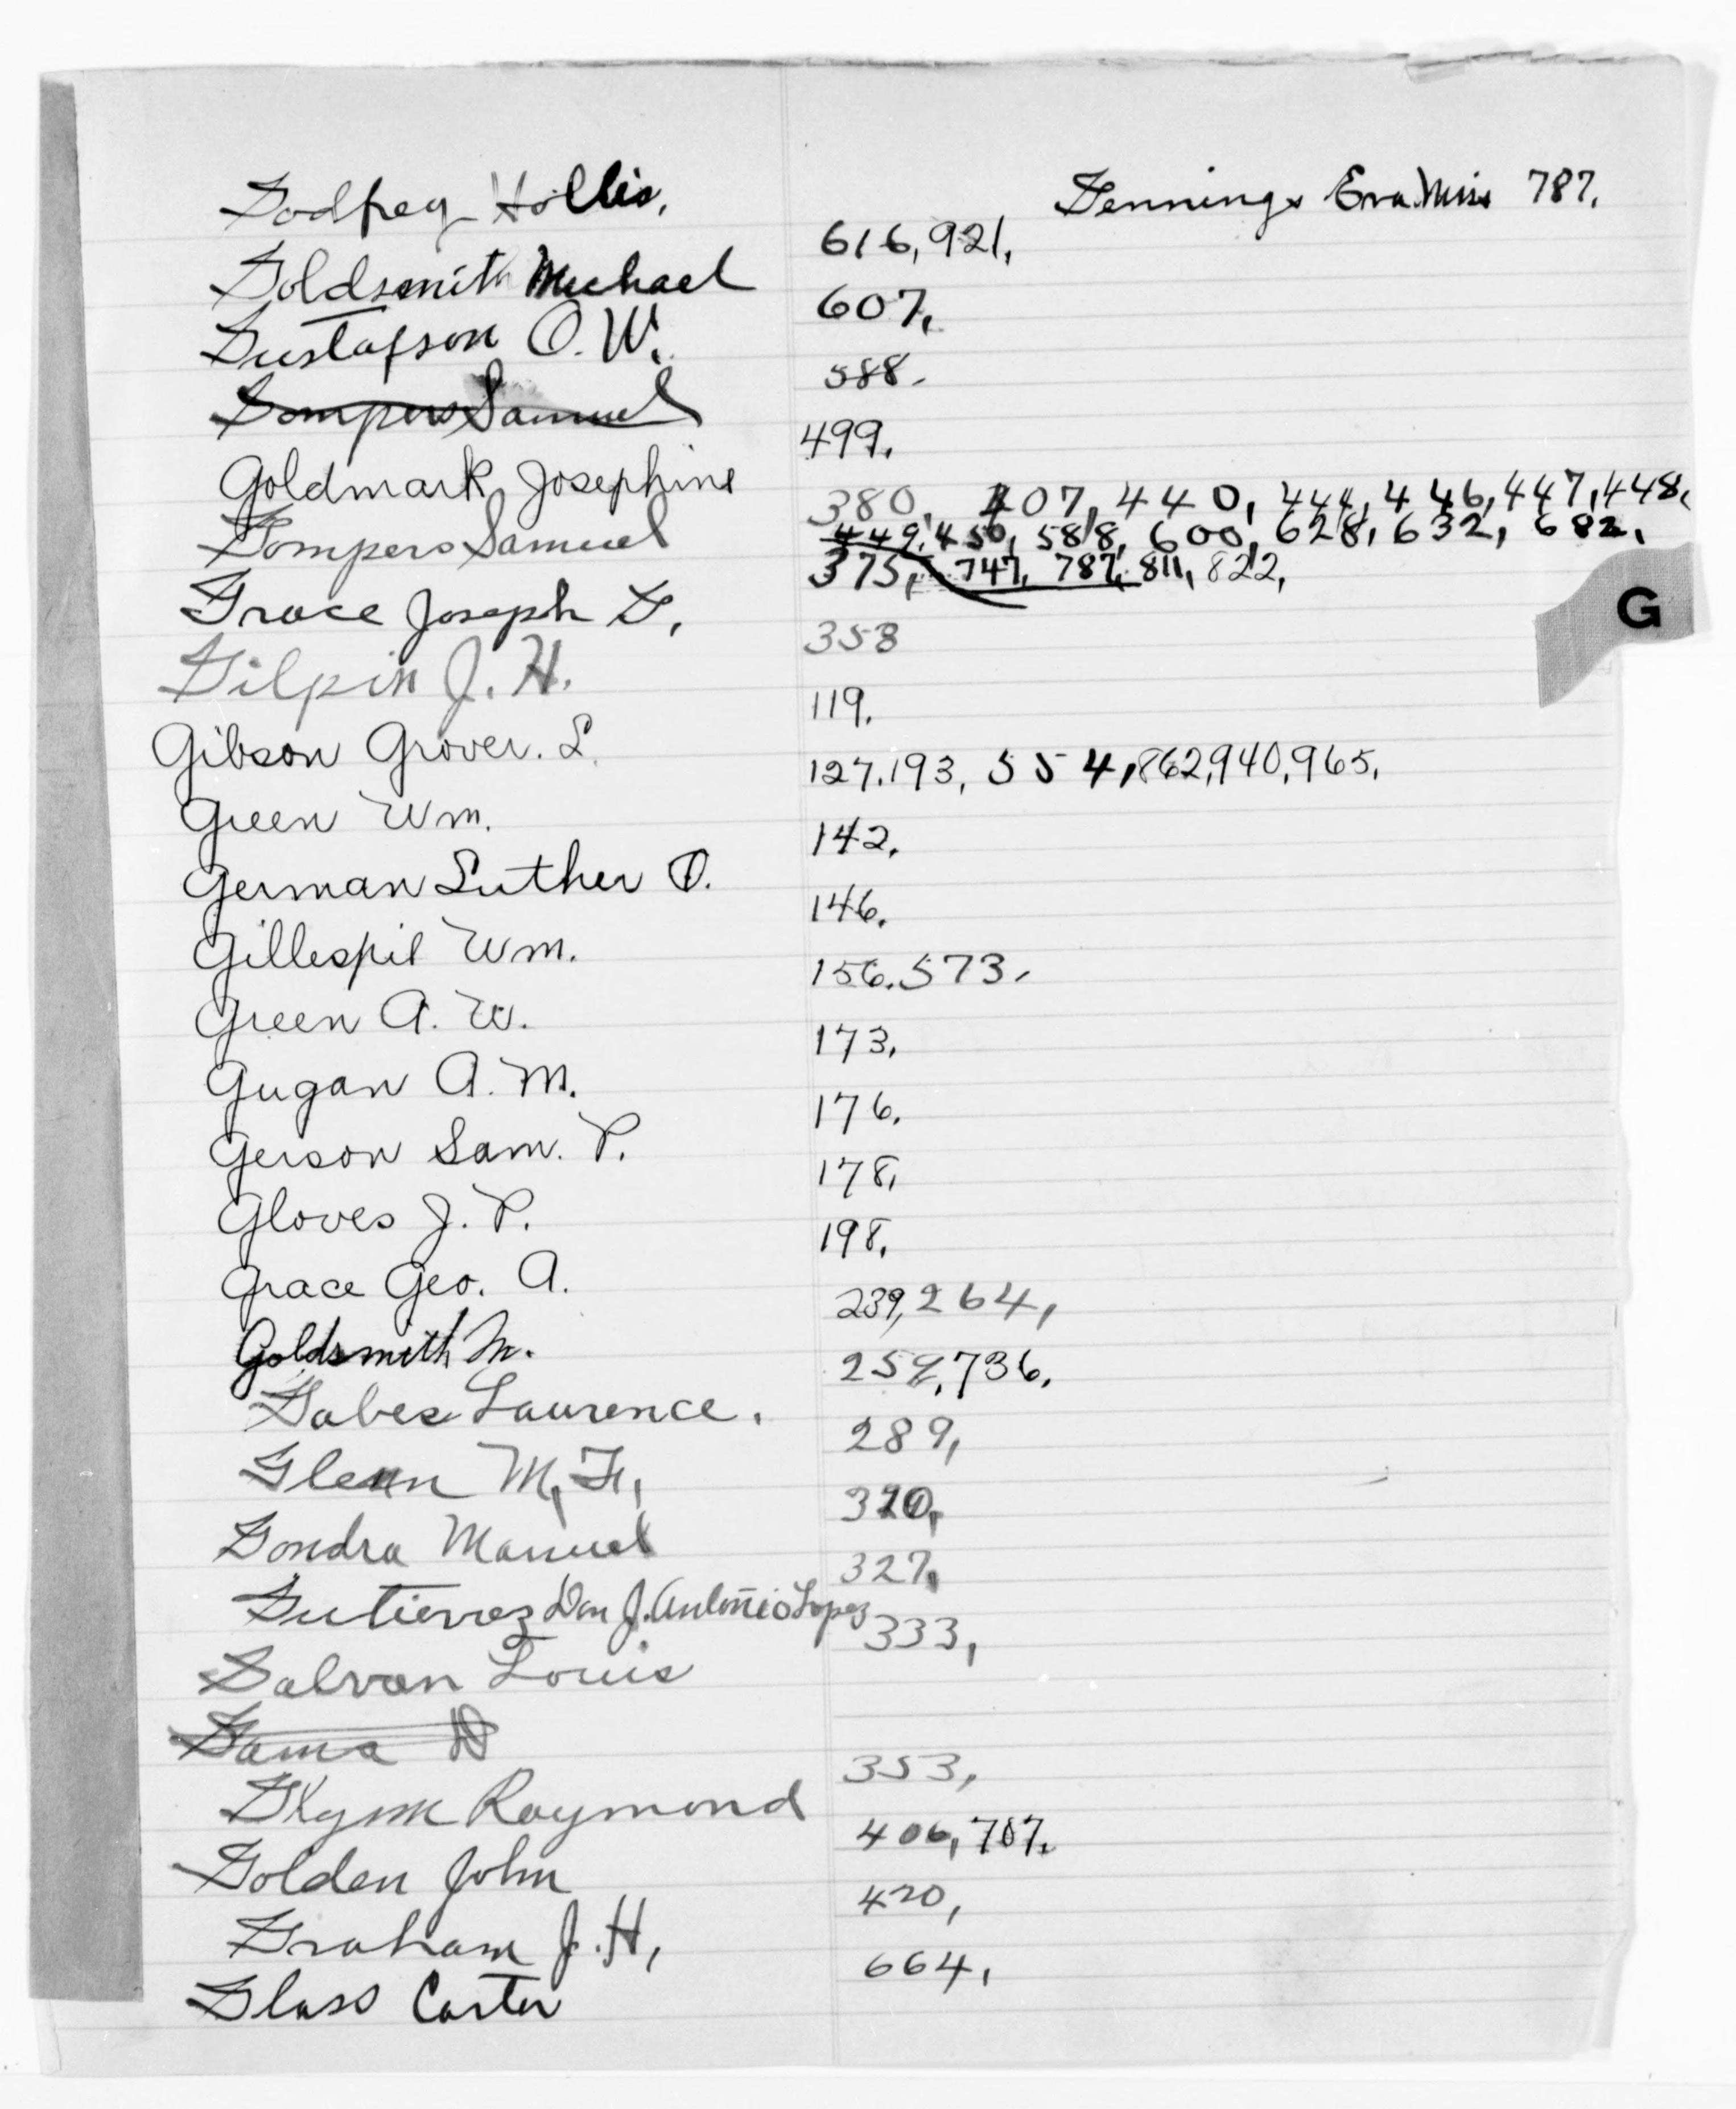 Godfrey Hollis. 616, 921. Gennings Eva Miss 787.
Goldsmith Michael 607.
Gustafson O. W. 588.
Gompers Samuel 499.
Goldmark Josephine 380, 407, 440, 444, 446, 447, 448.
Gompers Samuel 449, 450, 588, 600, 628, 632, 682.
375, 747, 787, 811, 822,
Grace Joseph G. 358
Gilpin J. H. 119.
Gibson Grover. L. 127. 193, 554, 862, 940, 965.
Green Wm. 142.
German Luther O. 146.
Gillespie Wm. 156. 573.
Green A. W. 173.
Gugan A. M. 176.
Gerson Sam. P. 178,
Gloves J. P. 198.
Grace Geo. A. 239, 264,
Goldsmith M. 259, 736.
Gabes Laurence. 289,
Glenn M, F, 320,
Gondra Manuel 327,
Gutierrez Don J. Antonio Lopez 333,
Galvan Louis
Gama D 353,
Raymond 406, 787.
Golden John 420,
Graham J. H, 664,
Glass Carter
G